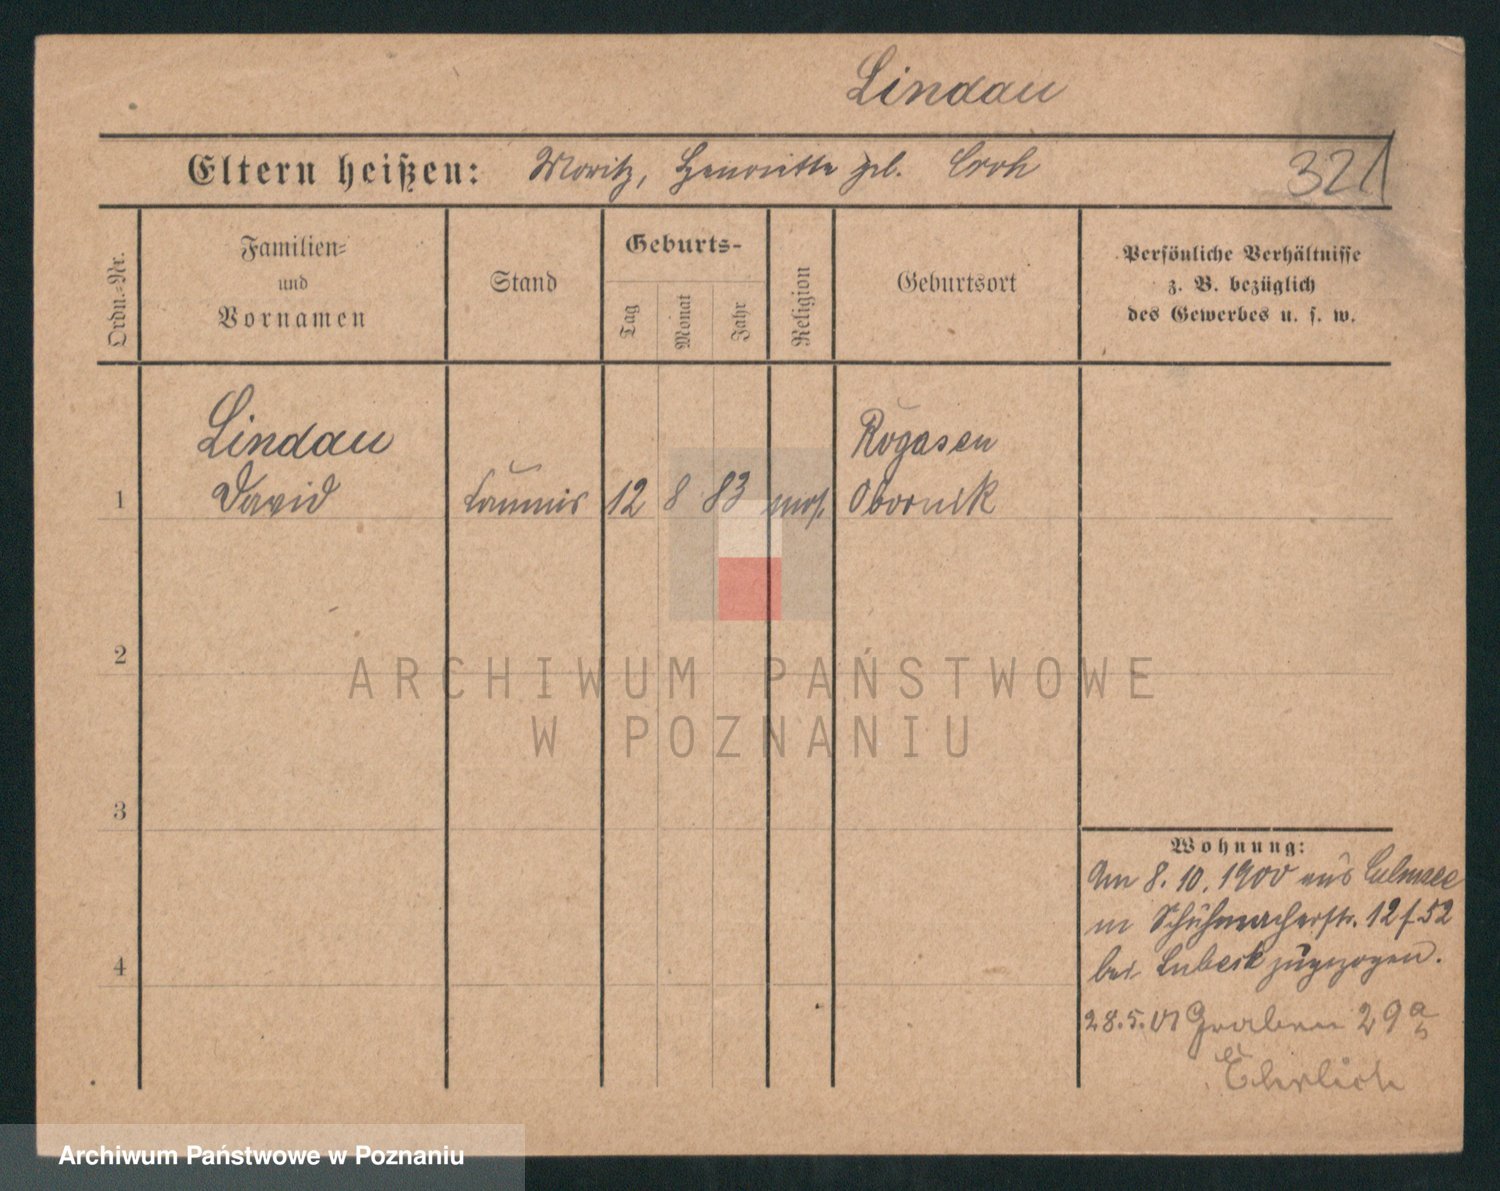 Lindau
Eltern heißen: Moritz, Henriette geb. Croh
321
Ordn.=Nr.
Familien=
und
Vornamen
Stand
Geburts-
Tag
Monat
Jahr
Religion
Geburtsort
Persönliche Verhältnisse
z. B. bezüglich
des Gewerbes u. s. w.
Lindau
Rogasen
1 David 12 8 83 mos. Obornik
2
3
4
Wohnung:
Am 8. 10. 1900 aus Culmsee
in Schuhmacherstr. 12 f. 52
bei Lubeck zugezogen.
28.5.01 Graben 29a
Ehrlich
ARCHIWUM PAŃSTWOWE
W POZNANIU
Archiwum Państwowe w Poznaniu